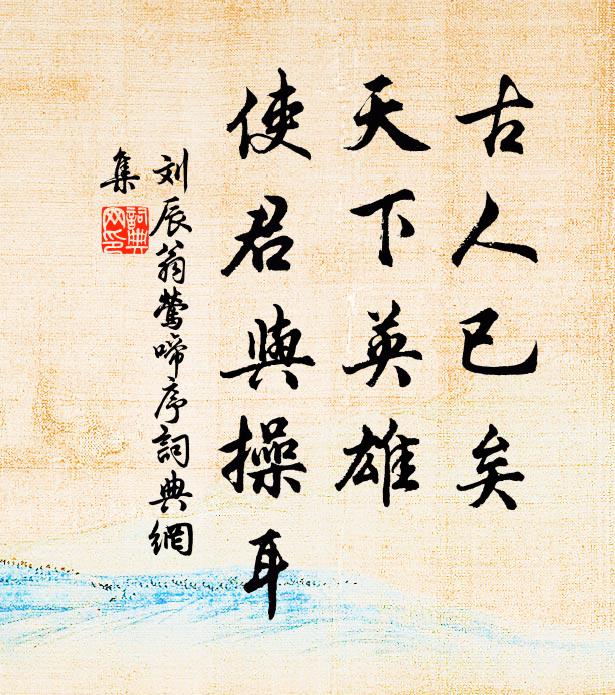 古人已矣
天下英雄
使君與操耳
刘辰翁鶯啼序詞典網
集
詞典網印